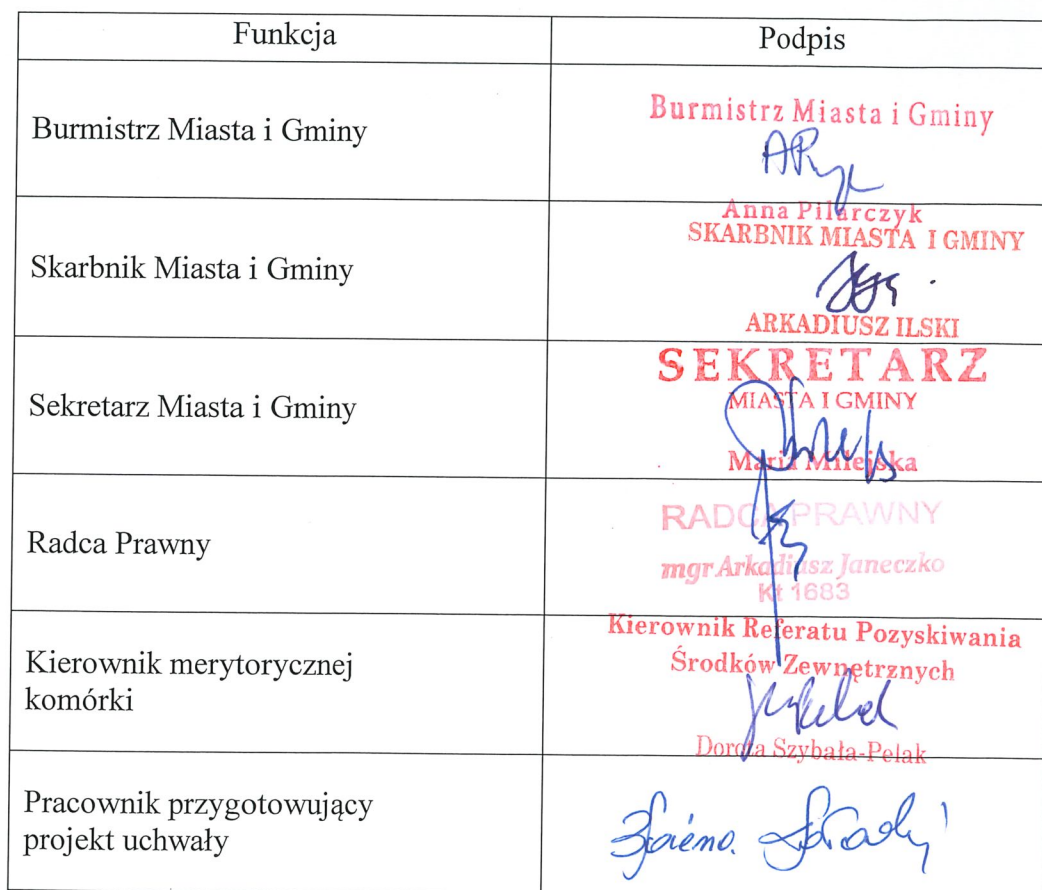 Funkcja Podpis
Burmistrz Miasta i Gminy
Burmistrz Miasta i Gminy
Anna Pilarczyk
Skarbnik Miasta i Gminy
SKARBNIK MIASTA I GMINY
ARKADIUSZ ILSKI
Sekretarz Miasta i Gminy
SEKRETARZ
MIASTA I GMINY
Maria Milejska
Radca Prawny
RADCA PRAWNY
mgr Arkadiusz Janeczko
Kt 1683
Kierownik merytorycznej
komórki
Kierownik Referatu Pozyskiwania
Środków Zewnętrznych
Dorota Szybała-Pelak
Pracownik przygotowujący
projekt uchwały